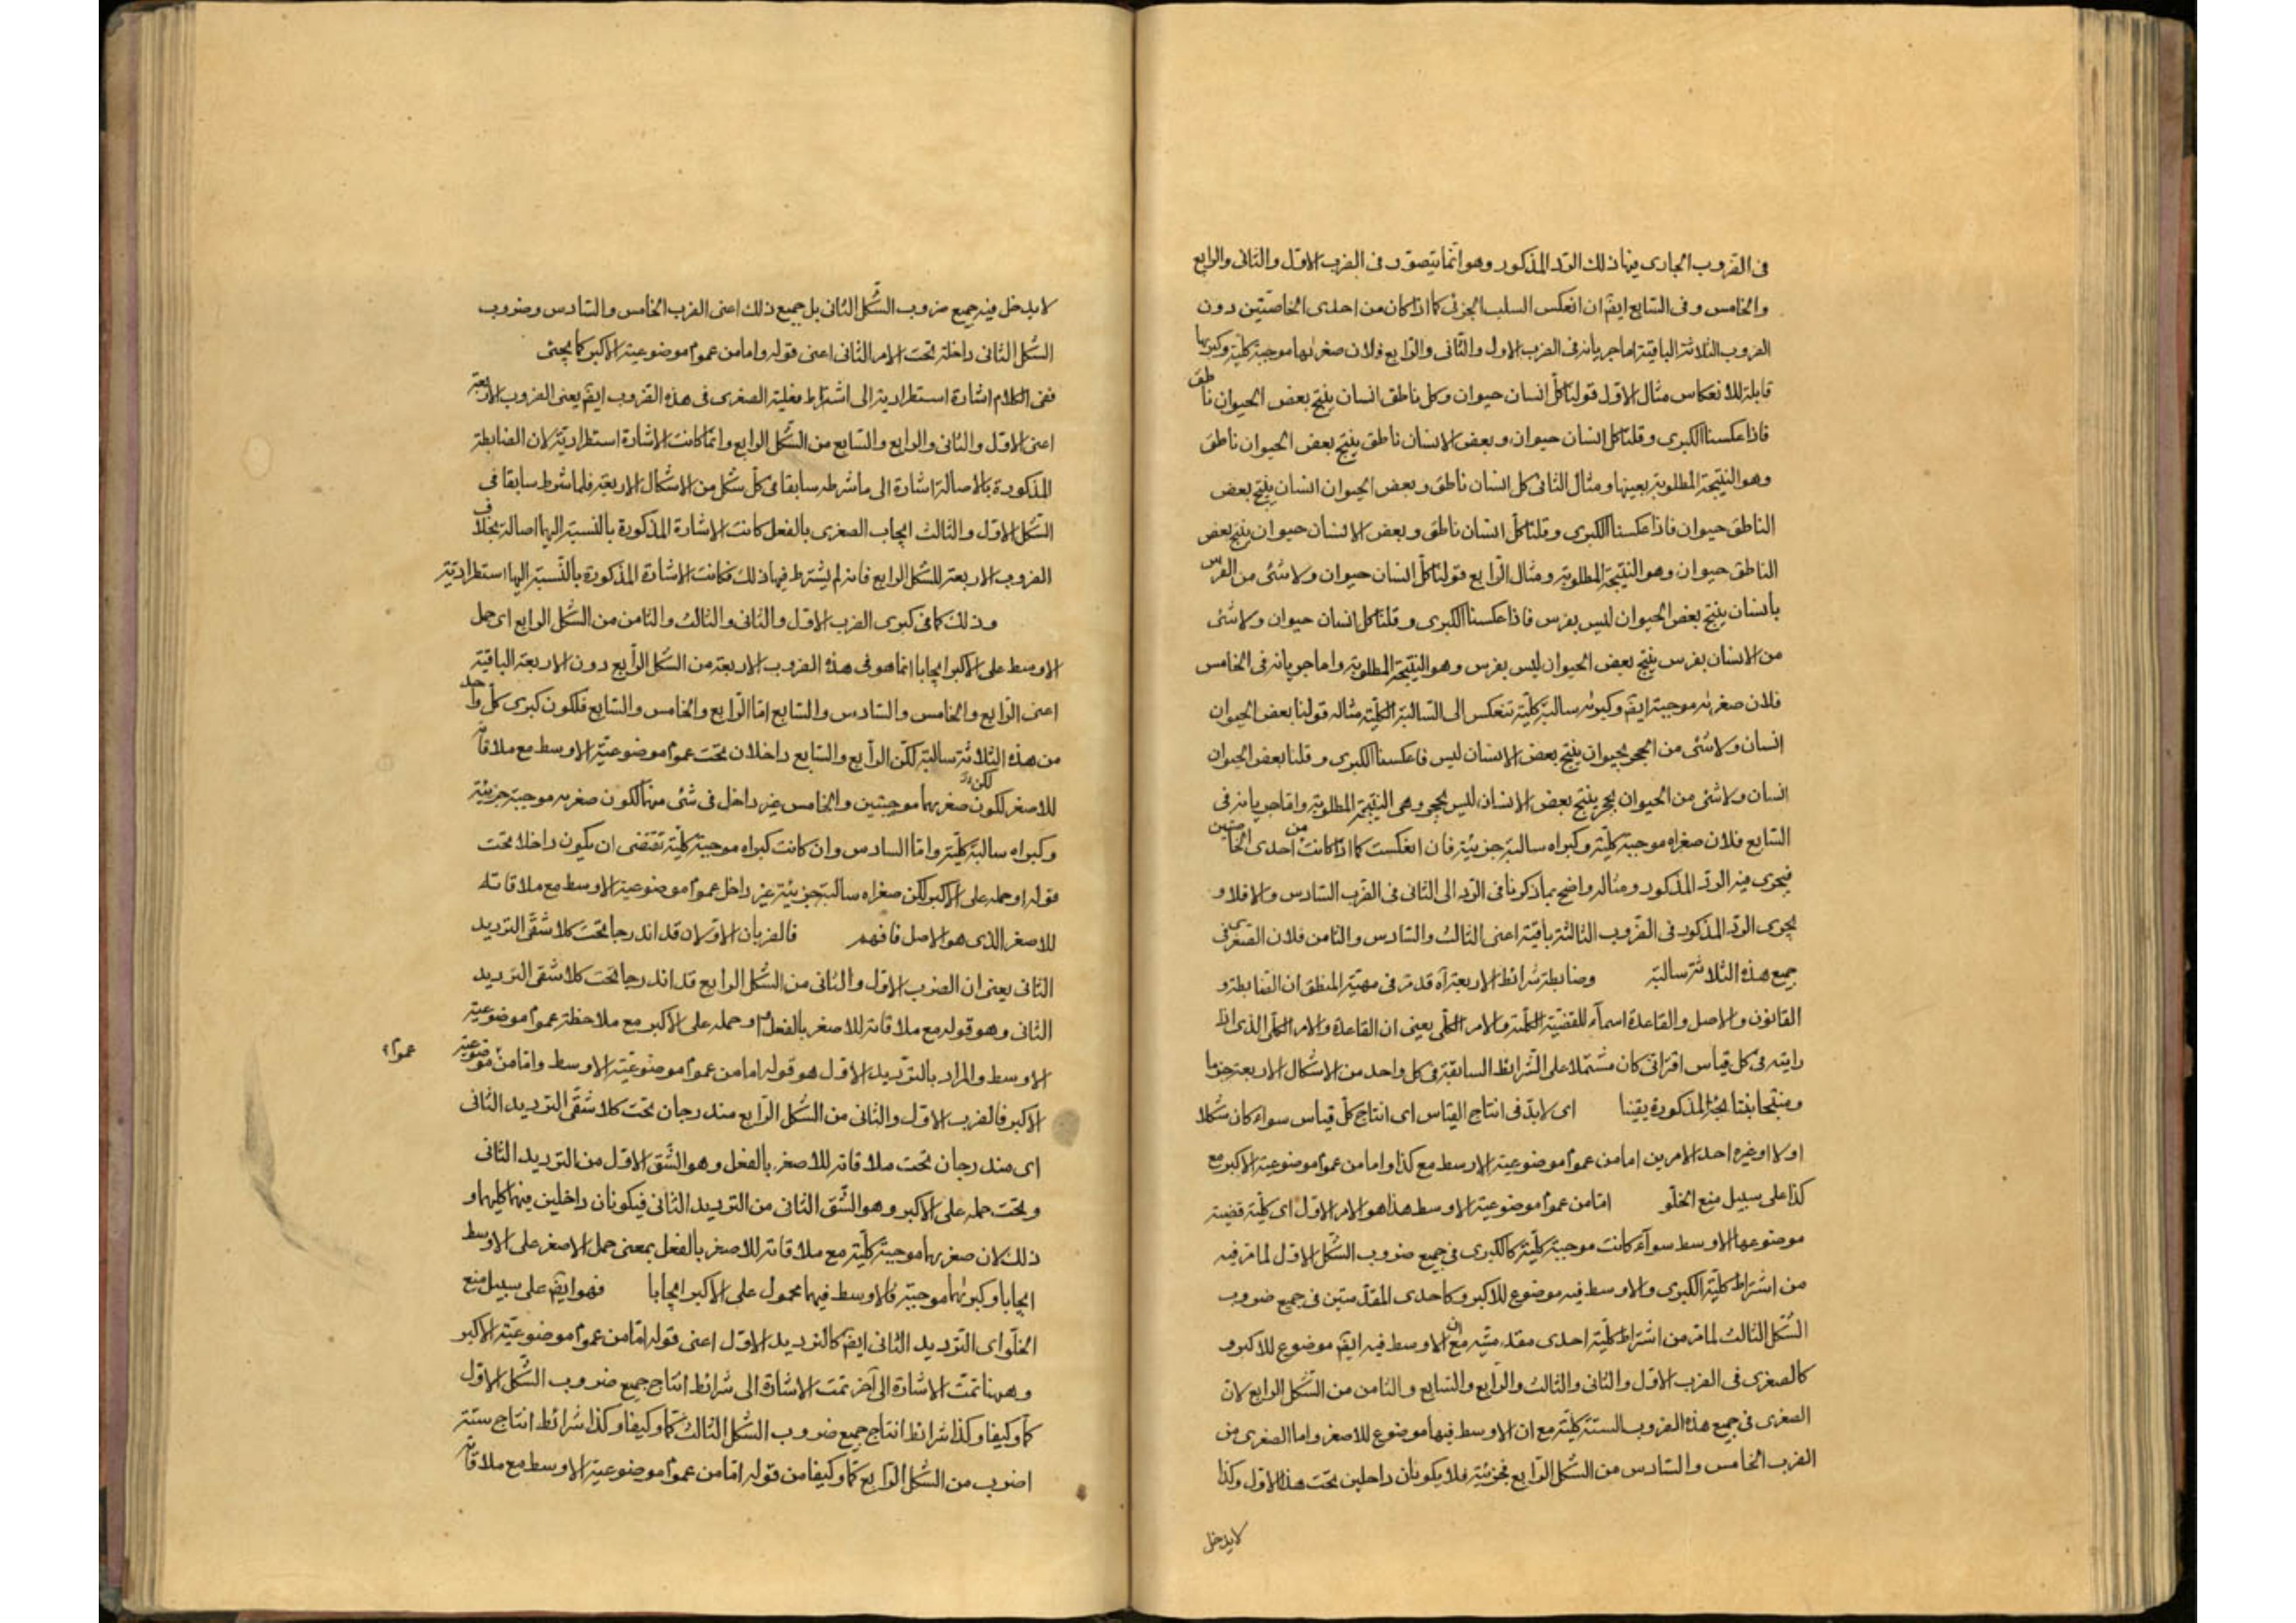 فى الضروب الجارى فيها ذلك الرد المذكور وهو انما يتصور فى الضرب الاول والثانى والرابع
والخامس وفى السابع ايضا ان انعكس السلب الجزئى كما اذا كان من احدى الخاصتين دون
الضروب الثلاثة الباقية اما جريانه فى الضرب الاول والثانى والرابع فلان صغريها موجبة كلية وكبريها
قابلة للانعكاس مثال الاول قولنا كل انسان حيوان وكل ناطق انسان ينتج بعض الحيوان ناطق
فاذا عكسنا الكبرى وقلنا كل انسان حيوان وبعض الانسان ناطق ينتج بعض الحيوان ناطق
وهو النتيجة المطلوبة بعينها ومثال الثانى كل انسان ناطق وبعض الحيوان انسان ينتج بعض
الناطق حيوان فاذا عكسنا الكبرى وقلنا كل انسان ناطق وبعض الانسان حيوان ينتج بعض
الناطق حيوان وهو النتيجة المطلوبة ومثال الرابع قولنا كل انسان حيوان ولا شئ من الفرس
بانسان ينتج بعض الحيوان ليس بفرس فاذا عكسنا الكبرى وقلنا كل انسان حيوان ولا شئ
من الانسان بفرس ينتج بعض الحيوان ليس بفرس وهو النتيجة المطلوبة واما جريانه فى الخامس
فلان صغريه موجبة ايضا وكبريه سالبة كلية تنعكس الى السالبة الكلية مثاله قولنا بعض الحيوان
انسان ولا شئ من الحجر بحيوان ينتج بعض الانسان ليس فاعكسنا الكبرى وقلنا بعض الحيوان
انسان ولا شئ من الحيوان بحجر ينتج بعض الانسان ليس بحجر وهى النتيجة المطلوبة واما جريانه فى
السابع فلان صغراه موجبة كلية وكبراه سالبة جزئية فان انعكست كما اذا كانت من احدى الخاصتين
فيجرى فيه الرد المذكور ومثاله واضح بما ذكرنا فى الرد الى الثانى فى الضرب السادس والا فلا و
يجرى الرد المذكور فى الضروب الثالثة باقية اعنى الثالث والسادس والثامن فلان الصغرى فى
جميع هذه الثلاثة سالبة وضابطة شرائط الاربعة آه قد مر فى مهية المنطق ان الضابطة و
القانون والاصل والقاعدة اسماء للقضية الكلية والامر الكلى يعنى ان القاعدة والامر الكلى الذى اذا
رايته فى كل قياس اقترانى كان مشتملا على الشرائط السابقة فى كل واحد من الاشكال الاربعة جزما
ومنتجا بنتايجه المذكورة يقينا اى لابد فى انتاج القياس اى انتاج كل قياس سواء كان شكلا
اولا او غيره احد الامرين اما من عموم موضوعية الاوسط مع كذا واما من عموم موضوعية الاكبر مع
كذا على سبيل منع الخلو اما من عموم موضوعية الاوسط هذا هو الامر الاول اى كلية قضية
موضوعها الاوسط سواء كانت موجبة كلية كالكبرى فى جميع ضروب الشكل الاول لما مر فيه
من اشتراط كلية الكبرى والاوسط فيه موضوع للاكبر وكاحدى المقدمتين فى جميع ضروب
الشكل الثالث لما مر من اشتراط كلية احدى مقدمتيه مع ان الاوسط فيه ايضا موضوع للاكبر و
كالصغرى فى الضرب الاول والثانى والثالث والرابع والسابع والثامن من الشكل الرابع لان
الصغرى فى جميع هذه الضروب الستة كلية مع ان الاوسط فيها موضوع للاصغر واما الصغرى من
الضرب الخامس والسادس من الشكل الرابع فجزئية فلا يكونان داخلين تحت هذا الاول وكذا
لا يدخل
لا يدخل فيه جميع ضروب الشكل الثانى بل جميع ذلك اعنى الضرب الخامس والسادس وضروب
الشكل الثانى داخلة تحت الامر الثانى اعنى قوله واما من عموم موضوعية الاكبر كما يجئ
ففى الكلام اشارة استطرادية الى اشتراط فعلية الصغرى فى هذه الضروب ايضا يعنى الضروب الاربعة
اعنى الاول والثانى والرابع والسابع من الشكل الرابع وانما كانت الاشارة استطرادية لان الضابطة
المذكورة بالاصالة اشارة الى ما شرطه سابقا فى كل شكل من الاشكال الاربعة فلما شرط سابقا فى
الشكل الاول والثالث ايجاب الصغرى بالفعل كانت الاشارة المذكورة بالنسبة اليهما اصالة بخلاف
الضروب الاربعة للشكل الرابع فانه لم يشترط فيها ذلك فكانت الاشارة المذكورة بالنسبة اليها استطرادية
وذلك كما فى كبرى الضرب الاول والثانى والثالث والثامن من الشكل الرابع اى حمل
الاوسط على الاكبر ايجابا انما هو فى هذه الضروب الاربعة من الشكل الرابع دون الاربعة الباقية
اعنى الرابع والخامس والسادس والسابع اما الرابع والخامس والسابع فلكون كبرى كل واحد
من هذه الثلاثة سالبة لكن الرابع والسابع داخلان تحت عموم موضوعية الاوسط مع ملاقاته
للاصغر لكون صغريهما موجبتين والخامس غير داخل فى شئ منهما لكون صغريه موجبة جزئية
لكن
وكبراه سالبة كلية واما السادس وان كانت كبراه موجبة كلية تقتضى ان يكون داخلا تحت
قوله او حمله على الاكبر لكن صغراه سالبة جزئية غير داخل عموم موضوعية الاوسط مع ملاقاته
للاصغر الذى هو الاصل فافهم فالضربان الاولان قد اندرجا تحت كلا شقى الترديد
الثانى يعنى ان الضرب الاول والثانى من الشكل الرابع قد اندرجا تحت كلا شقى الترديد
الثانى وهو قوله مع ملاقاته للاصغر بالفعل او حمله على الاكبر مع ملاحظة عموم موضوعية
الاوسط والمراد بالترديد الاول هو قوله اما من عموم موضوعية الاوسط واما من موضوعية
عموم
الاكبر فالضرب الاول والثانى من الشكل الرابع مندرجان تحت كلا شقى الترديد الثانى
اى مندرجان تحت ملاقاته للاصغر بالفعل وهو الشق الاول من الترديد الثانى
وتحت حمله على الاكبر وهو الشق الثانى من الترديد الثانى فيكونان داخلين فيهما كليهما و
ذلك لان صغريهما موجبة كلية مع ملاقاته للاصغر بالفعل بمعنى حمل الاصغر على الاوسط
ايجابا وكبريهما موجبة فالاوسط فيهما محمول على الاكبر ايجابا فهو ايضا على سبيل منع
الخلو اى الترديد الثانى ايضا كالترديد الاول اعنى قوله اما من عموم موضوعية الاكبر
وههنا تمت الاشارة الى آخر تمت الاشارة الى شرائط انتاج جميع ضروب الشكل الاول
كما وكيفا وكذا شرائط انتاج جميع ضروب الشكل الثالث كما وكيفا وكذا شرائط انتاج ستة
اضرب من الشكل الرابع كما وكيفا من قوله اما من عموم موضوعية الاوسط مع ملاقاته